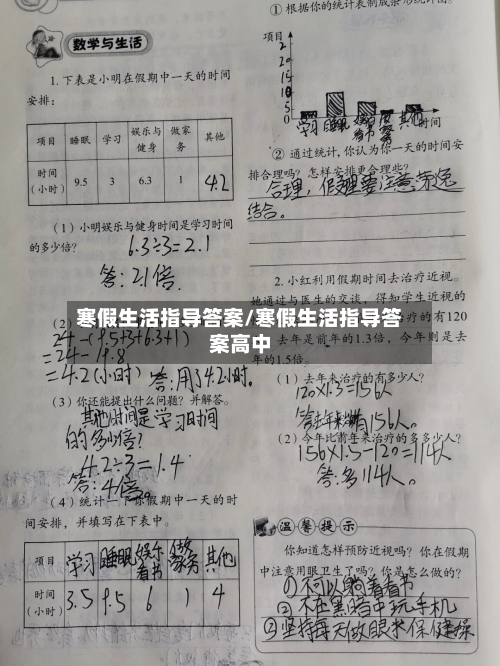 数学与生活
1.下表是小明在假期中一天的时间
安排：
项目 睡眠 学习 娱乐与健身 做家务 其他
时间（小时） 9.5 3 6.3 1 4.2
（1）小明娱乐与健身时间是学习时间
的多少倍？
6.3÷3=2.1
答：21倍
(2)
24-(9.5+3+6.3+1)
=24-19.8
=4.2(小时) 答:用了4.2小时。
（3）你还能提出什么问题？并解答。
其他时间是学习时间
的多少倍？
4.2÷3=1.4
（4）统计一下你假期中一天的时
间安排，并填写在下表中。
项目 学习 睡眠 娱乐看书 做家务 其他
时间（小时） 3.5 9.5 6 1 4
① 根据你的统计表制成条形统计图。
项目
20
15
10
5
0
学习 睡眠 其他 时间
② 通过统计，你认为你一天的时间安
排合理吗？怎样安排更合理些？
合理，假期里要注意劳逸
结合。
2.小红利用假期时间去治疗近视。
她通过与医生的交谈，得知学生近视的
疗的有120
去年是前年的1.3倍，今年则是去
年的1.5倍。
（1）去年来治疗的有多少人？
120×1.3=156人
答：去年来治疗有156人。
（2）今年比前年来治疗的多多少人？
156×1.5-120=114人
答：多114人。
温馨提示
你知道怎样预防近视吗？你在假期
中注意用眼卫生了吗？你是怎么做的？
①不可以躺着看书
②不在黑暗中玩手机
③坚持每天做眼保健操
寒假生活指导答案/寒假生活指导答
案高中